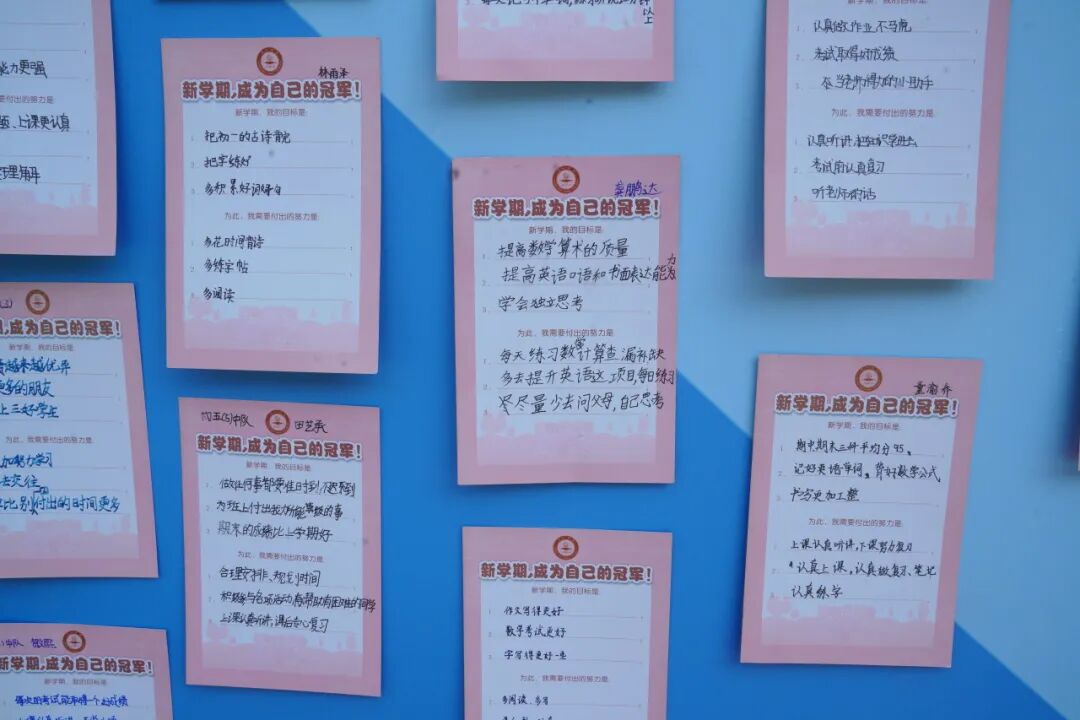 能力更强
付出的努力是
上课更认真
理解
林雨泽
新学期,成为自己的冠军!
新学期,我的目标是:
把初一的古诗背完
把字练好
多积累好词好句
为此,我需要付出的努力是:
多花时间背诗
多练字帖
多阅读
龚鹏达
新学期,成为自己的冠军!
新学期,我的目标是:
提高数学算术的质量
提高英语口语和书面表达能力
学会独立思考
为此,我需要付出的努力是:
每天练习数学计算查漏补缺
多去提升英语这项目,每日练习
尽量少去问父母,自己思考
认真做作业不马虎
考试取得好成绩
为此,我需要付出的努力是:
认真听讲
考试前认真复习
听老师的话
成为自己的冠军!
新学期,我的目标是:
越来越优异
更多的朋友
上三好学生
需要付出的努力是:
加努力学习
去交往
比别人付出的时间更多
初五(3)中队
田艺承
新学期,成为自己的冠军!
新学期,我的目标是:
做任何事都要准时到,不迟到
为班上付出我所能做的事
期末的成绩比上学期好
为此,我需要付出的努力是:
合理安排、规划时间
积极参与各项活动,帮助有困难的同学
上课认真听讲,课后专心复习
新学期,成为自己的冠军!
新学期,我的目标是:
期中期末三科平均分95。
记好英语单词。背好数学公式
书写更加工整
为此,我需要付出的努力是:
上课认真听讲,下课努力复习
认真上课,认真做复习、笔记
认真练字
新学期,成为自己的冠军!
新学期,我的目标是:
作文写得更好
数学考试更好
字写得更好一些
为此,我需要付出的努力是:
多阅读、多写
中队
新学期,成为自己的冠军!
新学期,我的目标是:
每次的考试能取得一个好成绩